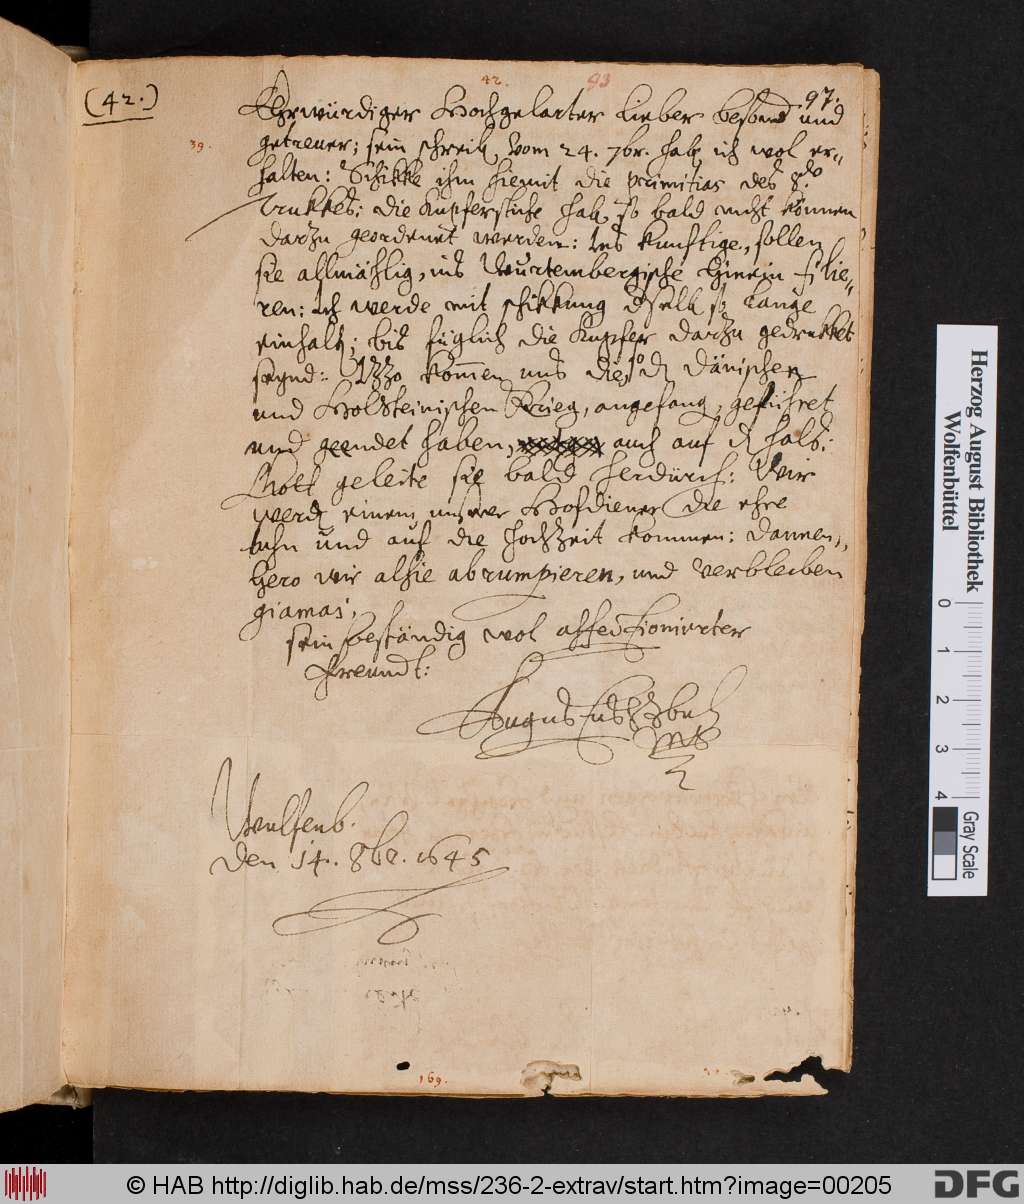 (42.)
42.
93
97.
39.
Ehrwürdiger Hochgelarter lieber besond und
getrewer; sein schreib vom 24. 7br. hab ich wol er-
halten: Schikke ihm hiemit die primitias des
Trukkes: die Kupferstiche hab so bald nicht können
darzu geordenet werden: Ins kunftige, sollen
sie allmählig, ins Wurtembergische hinein
ren: Ich werde mit schikkung so lange
einhalt; bis füglich die Kupfer darzu gedrukket
seynd: Izzo kom̄en uns die, so d Dänischen
und Holsteinischen Krieg, angefang, geführet
und geendet haben, auch auf d hals:
Gott geleite sie bald herdurch: Wir
werd einem unser Hofdiener die ehre
tuhn und auf die hochzeit kommen: dannen,,
hero wir alhie abrumpieren, und verbleiben
giamai;
sein beständig wol affectionirter
Freundt:
Augustus
Wulfenb.
den 14. 8br. 1645
169.
Herzog August Bibliothek
Wolfenbüttel
0 1 2 3 4
Gray Scale
© HAB http://diglib.hab.de/mss/236-2-extrav/start.htm?image=00205
DFG